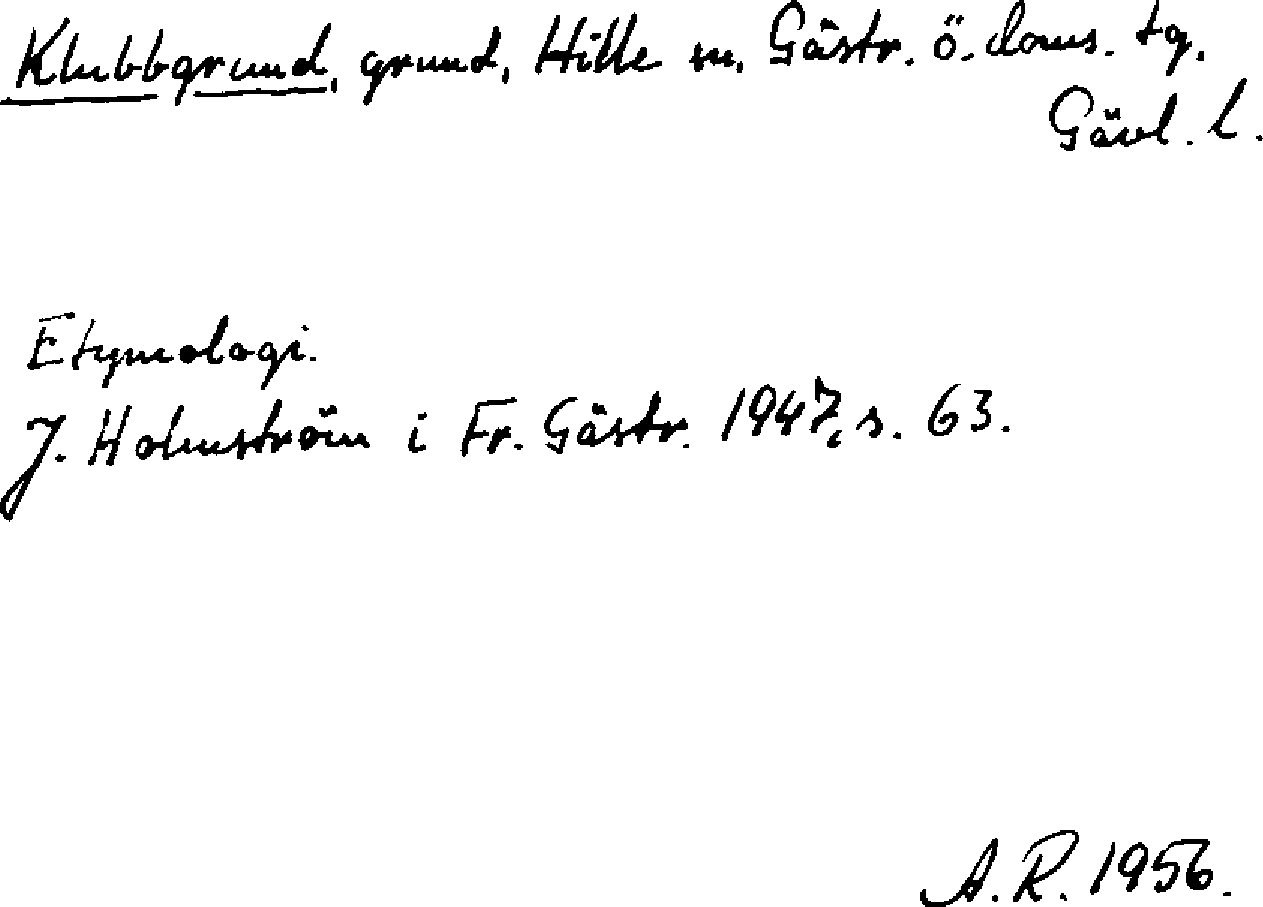 Klubbgrund, grund, Hille sn, Gästr. ö. doms. tg.
Gävl. l.
Etymologi.
J. Holmström i Fr. Gästr. 1947, s. 63.
A.R. 1956.